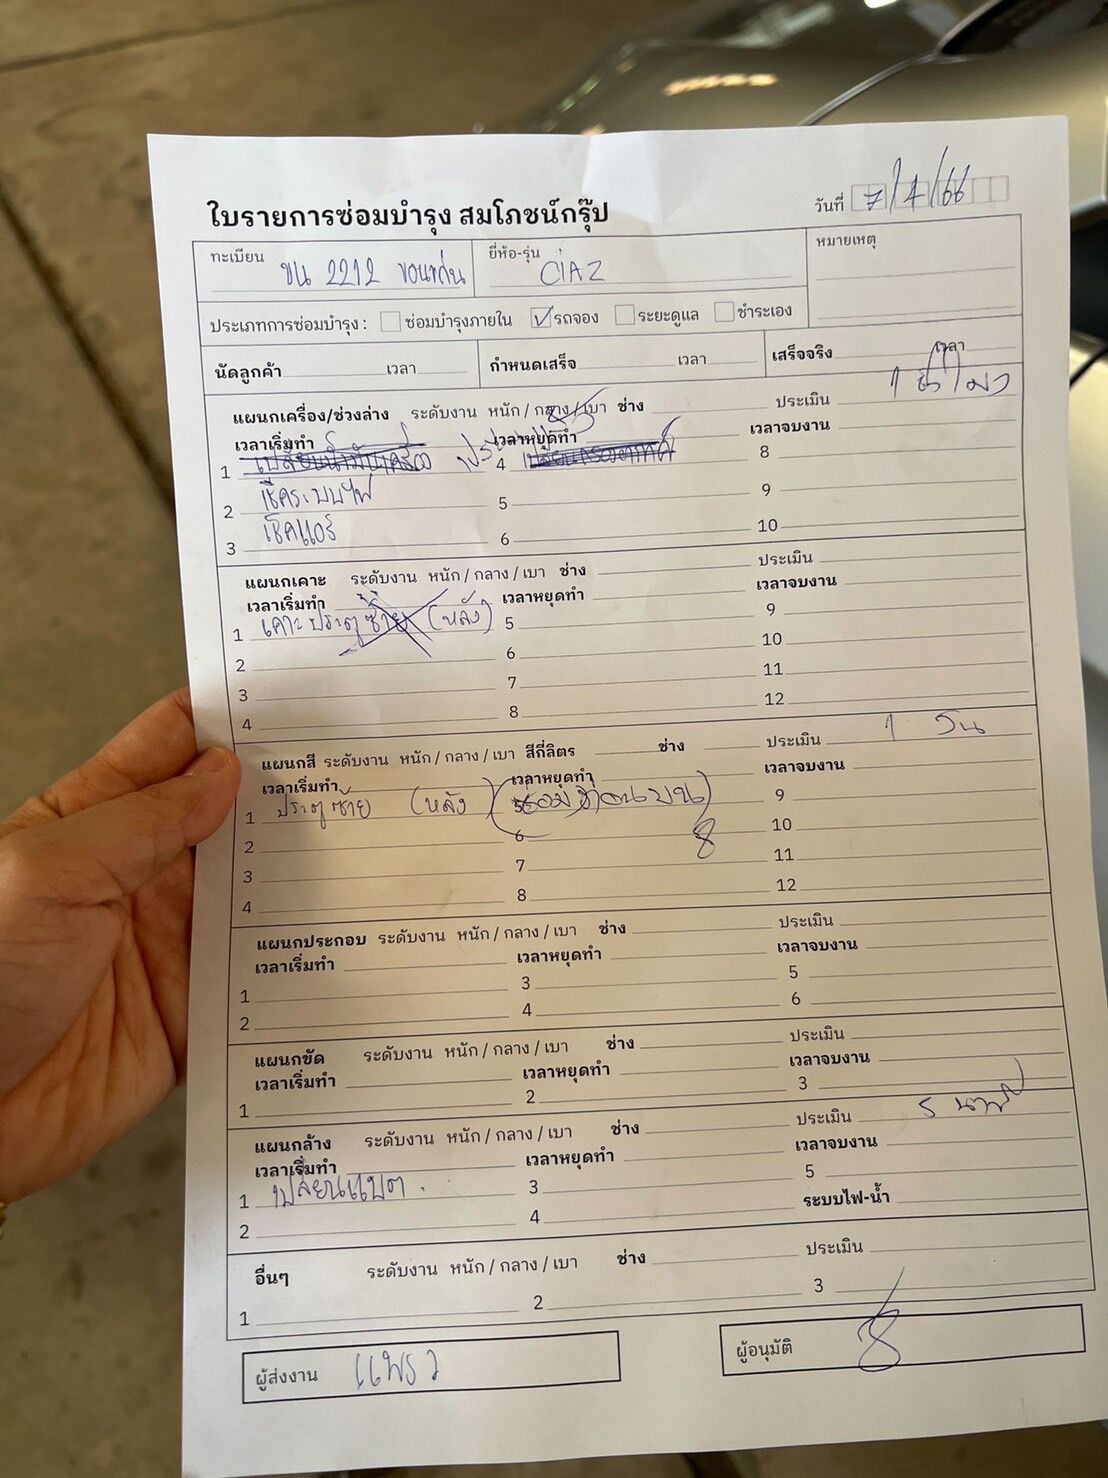 ใบรายการซ่อมบำรุง สมโภชน์กรุ๊ป
วันที่ 7/4/66
ทะเบียน ขน 2212 ขอนแก่น ยี่ห้อ-รุ่น CIAZ หมายเหตุ
ประเภทการซ่อมบำรุง : ซ่อมบำรุงภายใน ✓ รถจอง ระยะดูแล ชำระเอง
นัดลูกค้า เวลา กำหนดเสร็จ เวลา เสร็จจริง เวลา
แผนกเครื่อง/ช่วงล่าง ระดับงาน หนัก / กลาง / เบา ช่าง ประเมิน 1 ชั่วโมง
เวลาเริ่มทำ เวลาหยุดทำ เวลาจบงาน
1 เปลี่ยนน้ำมันเครื่อง 4 เปลี่ยนกรองอากาศ 8
2 เช็คระบบไฟ 5 9
3 เช็คแอร์ 6 10
แผนกเคาะ ระดับงาน หนัก / กลาง / เบา ช่าง ประเมิน
เวลาเริ่มทำ เวลาหยุดทำ เวลาจบงาน
1 เคาะประตูซ้าย (หลัง) 5 9
2 6 10
3 7 11
4 8 12
แผนกสี ระดับงาน หนัก / กลาง / เบา สีกี่ลิตร ช่าง ประเมิน 1 วัน
เวลาเริ่มทำ เวลาหยุดทำ เวลาจบงาน
1 ประตูซ้าย (หลัง) 5 (ซ่อมด้านบน) 9
2 6 10
3 7 11
4 8 12
แผนกประกอบ ระดับงาน หนัก / กลาง / เบา ช่าง ประเมิน
เวลาเริ่มทำ เวลาหยุดทำ เวลาจบงาน
1 3 5
2 4 6
แผนกขัด ระดับงาน หนัก / กลาง / เบา ช่าง ประเมิน
เวลาเริ่มทำ เวลาหยุดทำ เวลาจบงาน
1 2 3
แผนกล้าง ระดับงาน หนัก / กลาง / เบา ช่าง ประเมิน 5 นาที
เวลาเริ่มทำ เวลาหยุดทำ เวลาจบงาน
1 เปลี่ยนแบต 3 5
2 4 ระบบไฟ-น้ำ
อื่นๆ ระดับงาน หนัก / กลาง / เบา ช่าง ประเมิน
1 2 3
ผู้ส่งงาน แพรว ผู้อนุมัติ